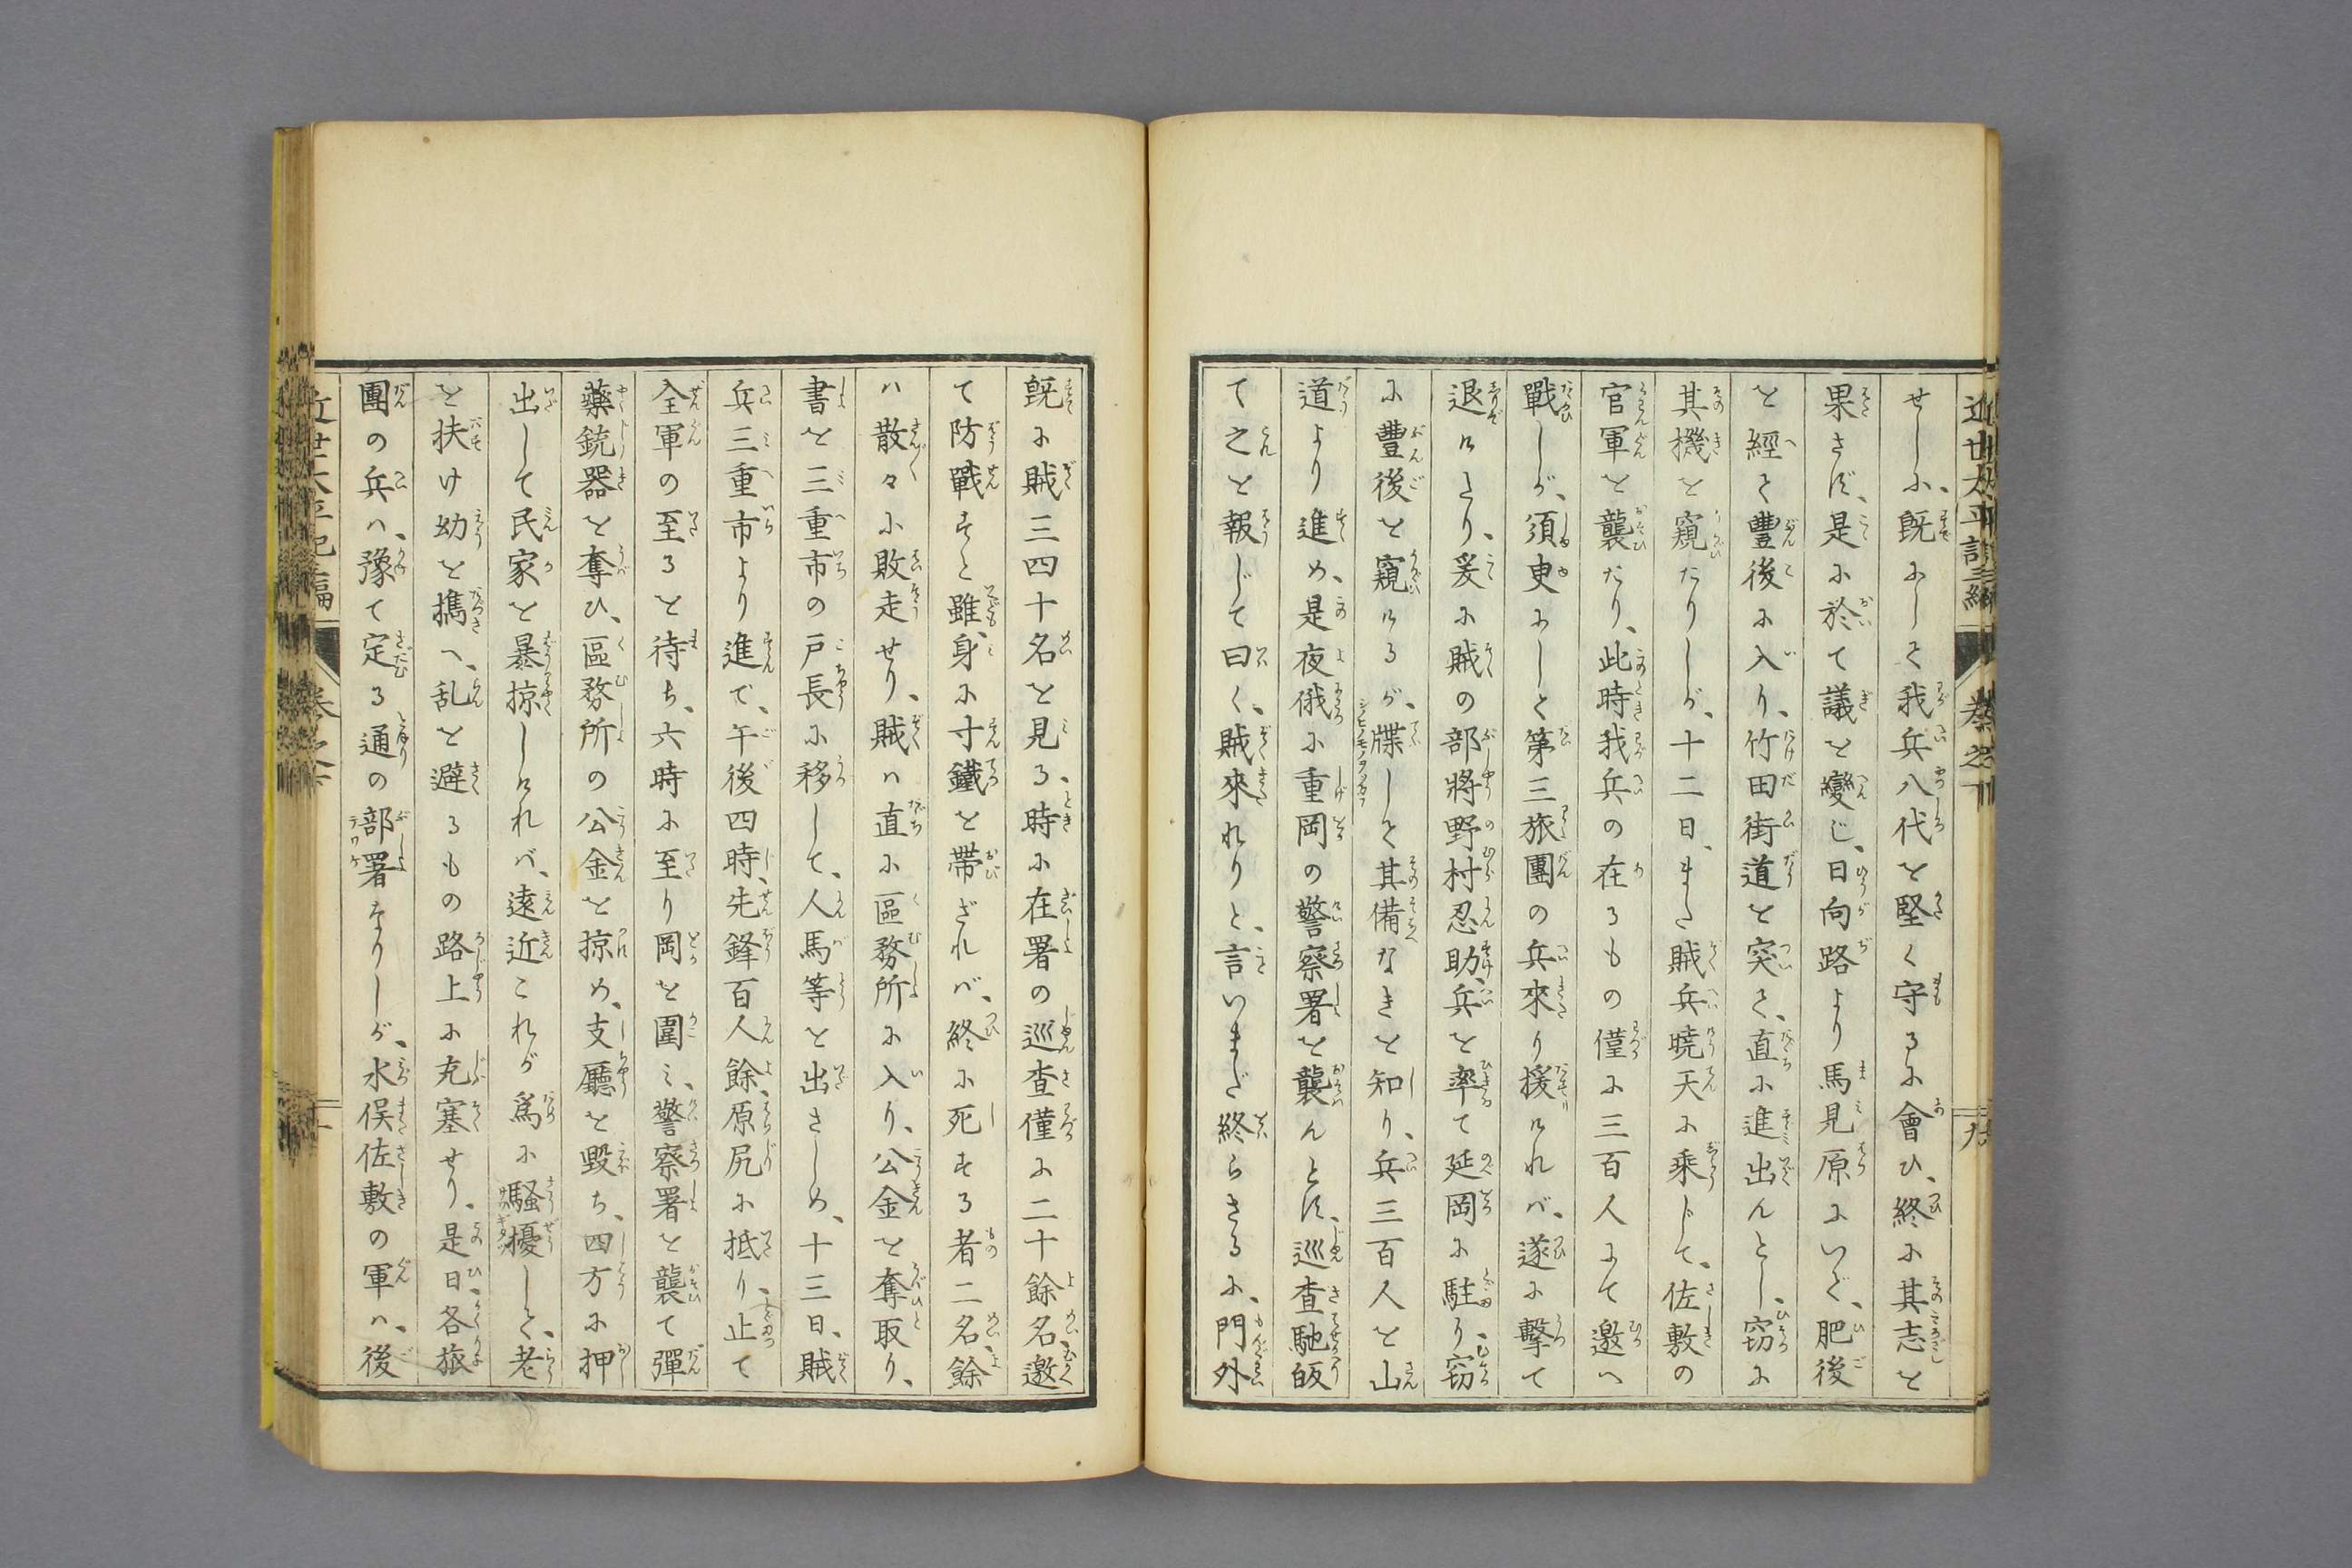 せしに、既にして我兵八代を堅く守るに會ひ、終に其志を
果さず、是に於て議を變じ、日向路より馬見原にいで、肥後
を經て豐後に入り、竹田街道を突て、直に進出んとし、窃に
其機を窺たりしが、十二日、また賊兵曉天に乘じて、佐敷の
官軍を襲たり、此時我兵の在るもの僅に三百人にて邀へ
戰しが、須臾にして第三旅團の兵來り援ければ、遂に擊て
退けたり、爰に賊の部將野村忍助、兵を率て延岡に駐り、窃
に豐後を窺けるが、牒して其備なきを知り、兵三百人を山
道より進め、是夜俄に重岡の警察署を襲んとす、巡査馳皈
て之を報じて曰く、賊來れりと、言いまだ終らざるに、門外
既に賊三四十名を見る、時に在署の巡査僅に二十餘名、邀
て防戰すと雖、身に寸鐵を帶ざれば、終に死する者二名、餘
ハ散々に敗走せり、賊ハ直に區務所に入り、公金を奪取り、
書を三重市の戸長に移して、人馬等を出さしめ、十三日、賊
兵三重市より進で、午後四時、先鋒百人餘、原尻に抵り、止て
全軍の至るを待ち、六時に至り岡を圍み、警察署を襲て彈
藥銃器を奪ひ、區務所の公金を掠め、支廳を毀ち、四方に押
出して民家を暴掠しければ、遠近これが爲に騷擾しく、老
を扶け幼を携へ、乱を避るもの路上に充塞せり、是日、各旅
團の兵ハ、豫て定る通の部署なりしが、水俣佐敷の軍ハ、後